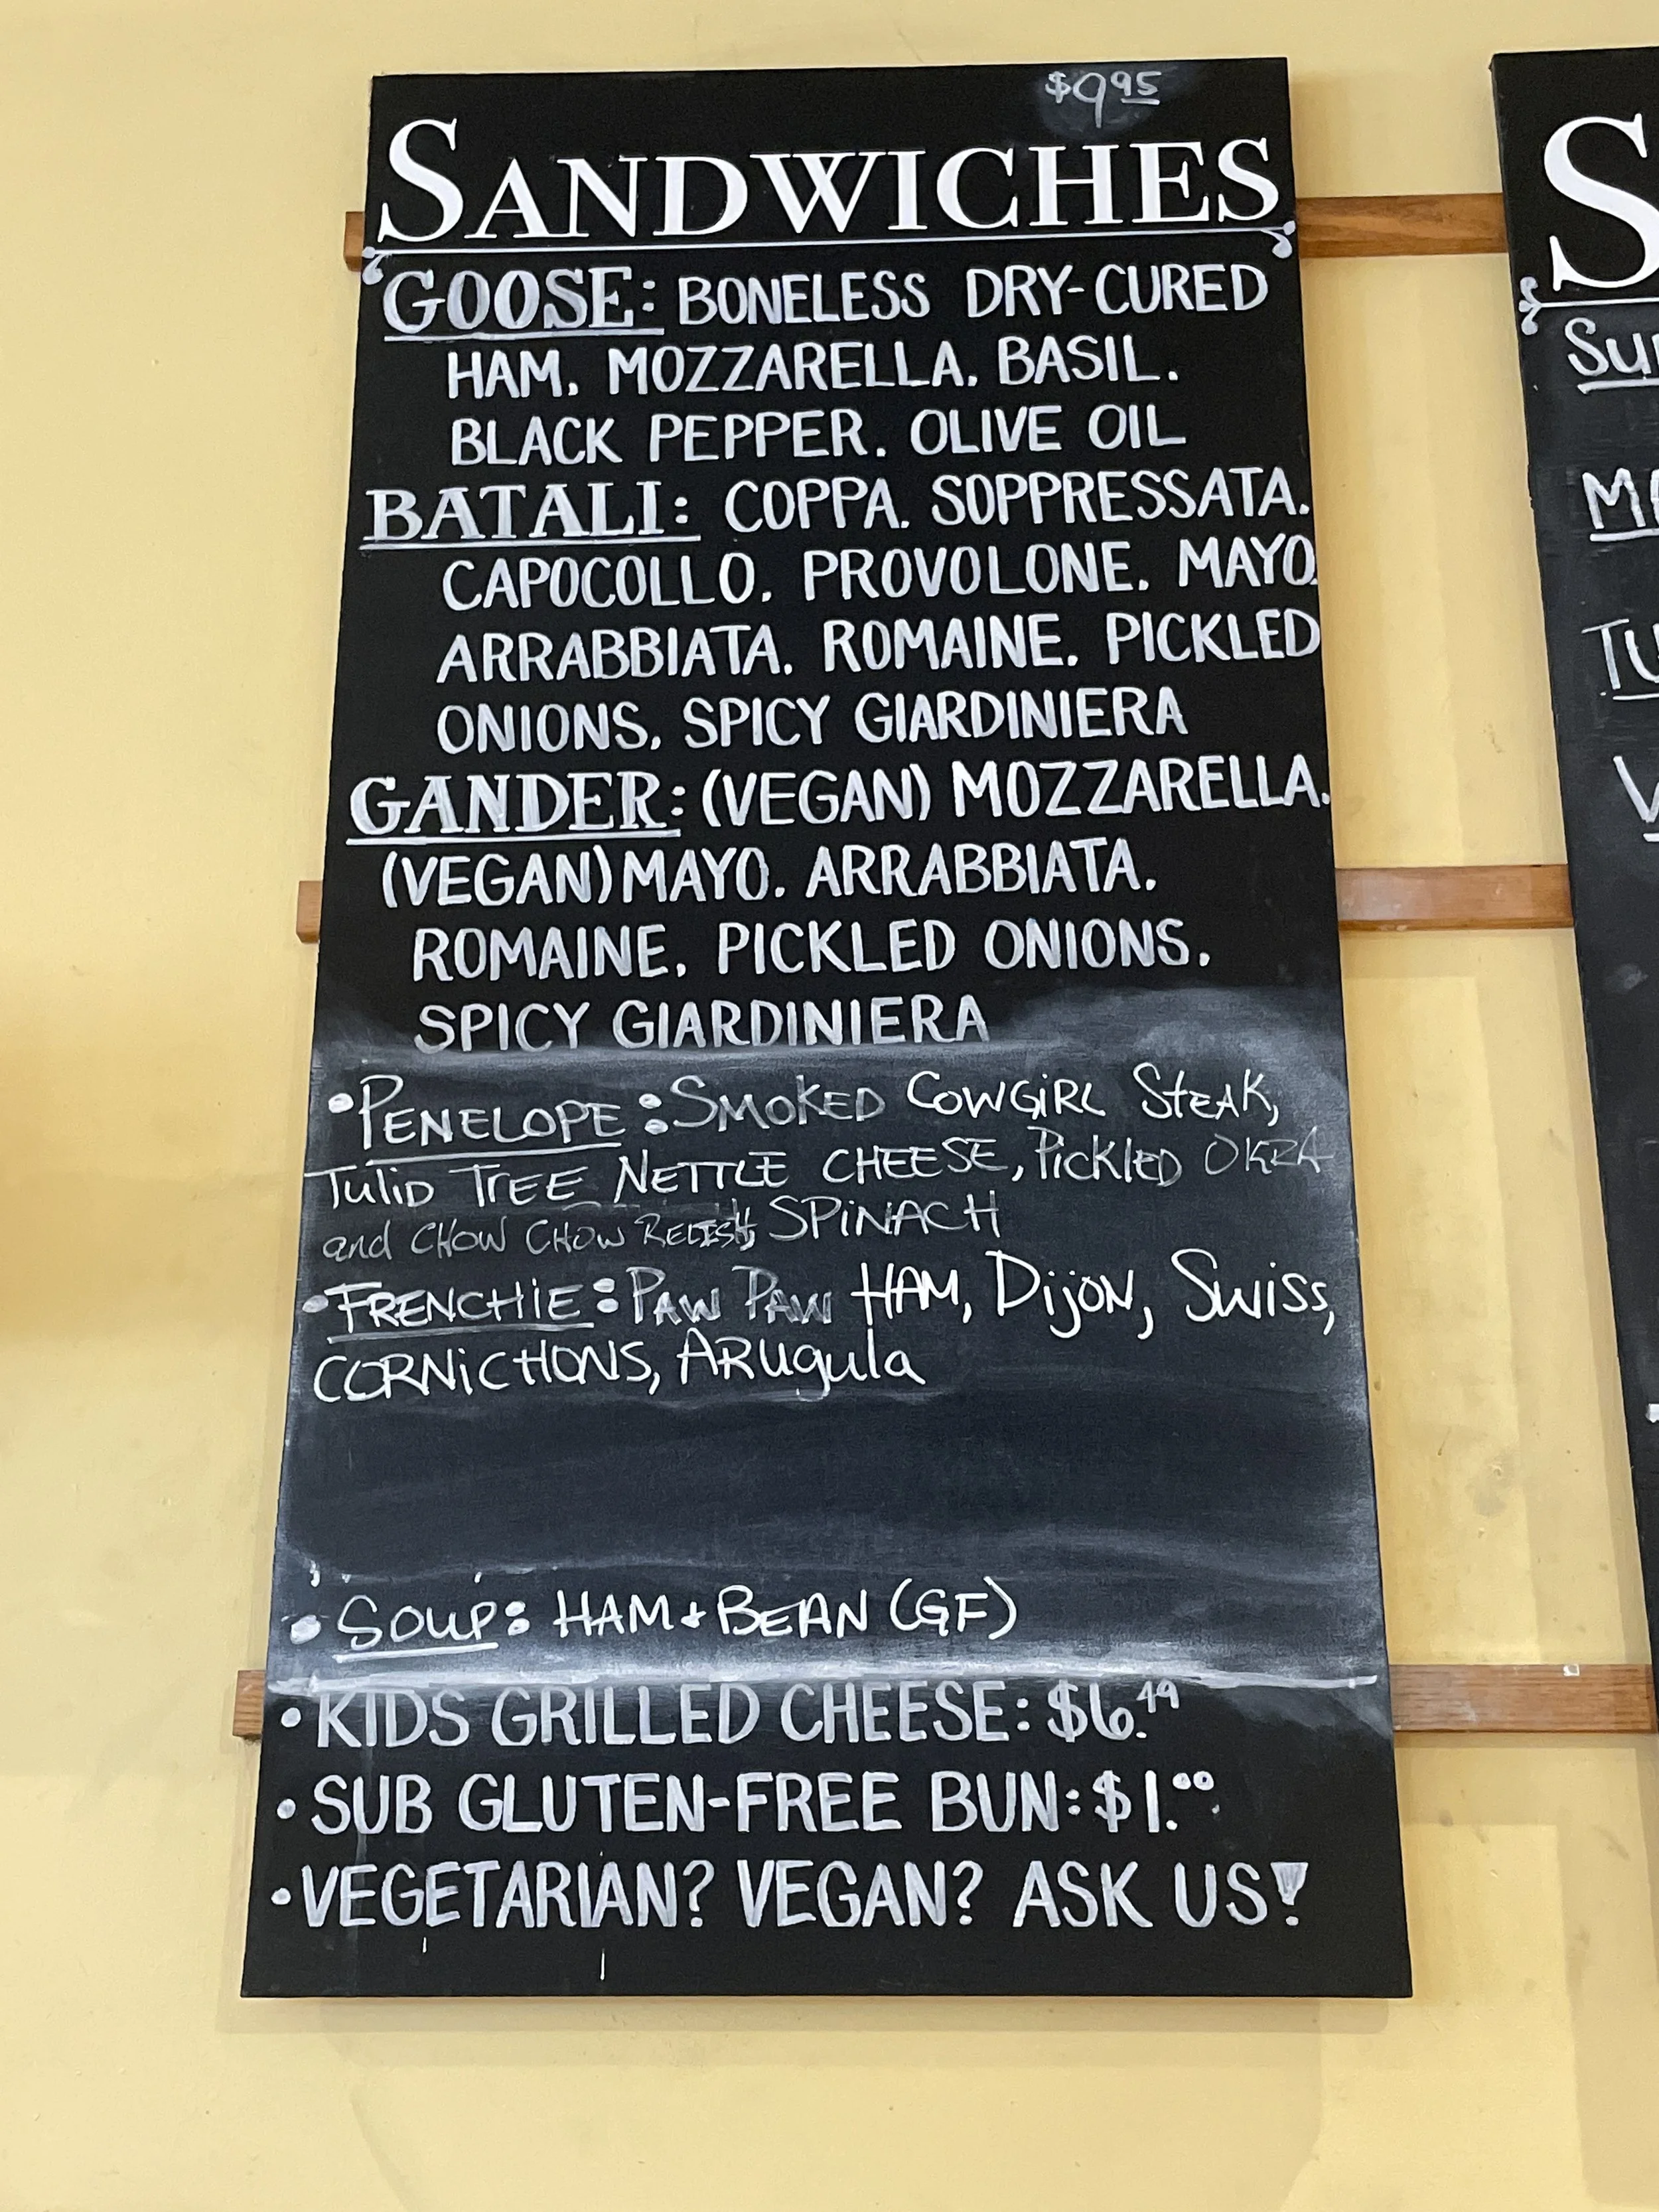 $9.95
SANDWICHES
GOOSE: BONELESS DRY-CURED
HAM. MOZZARELLA. BASIL.
BLACK PEPPER. OLIVE OIL
BATALI: COPPA. SOPPRESSATA.
CAPOCOLLO. PROVOLONE. MAYO.
ARRABBIATA. ROMAINE. PICKLED
ONIONS. SPICY GIARDINIERA
GANDER: (VEGAN) MOZZARELLA.
(VEGAN) MAYO. ARRABBIATA.
ROMAINE. PICKLED ONIONS.
SPICY GIARDINIERA
•PENELOPE: SMOKED COWGIRL STEAK,
Tulip TREE NETTLE CHEESE, PickleD OKRA
and CHOW CHOW RELISH, SPINACH
•FRENCHIE: PAW PAW HAM, DijON, Swiss,
CORNICHONS, ARugula
• Soup: HAM + BEAN (GF)
• KIDS GRILLED CHEESE: $6.49
• SUB GLUTEN-FREE BUN: $1.00
• VEGETARIAN? VEGAN? ASK US!
S
Su
MA
TU
V